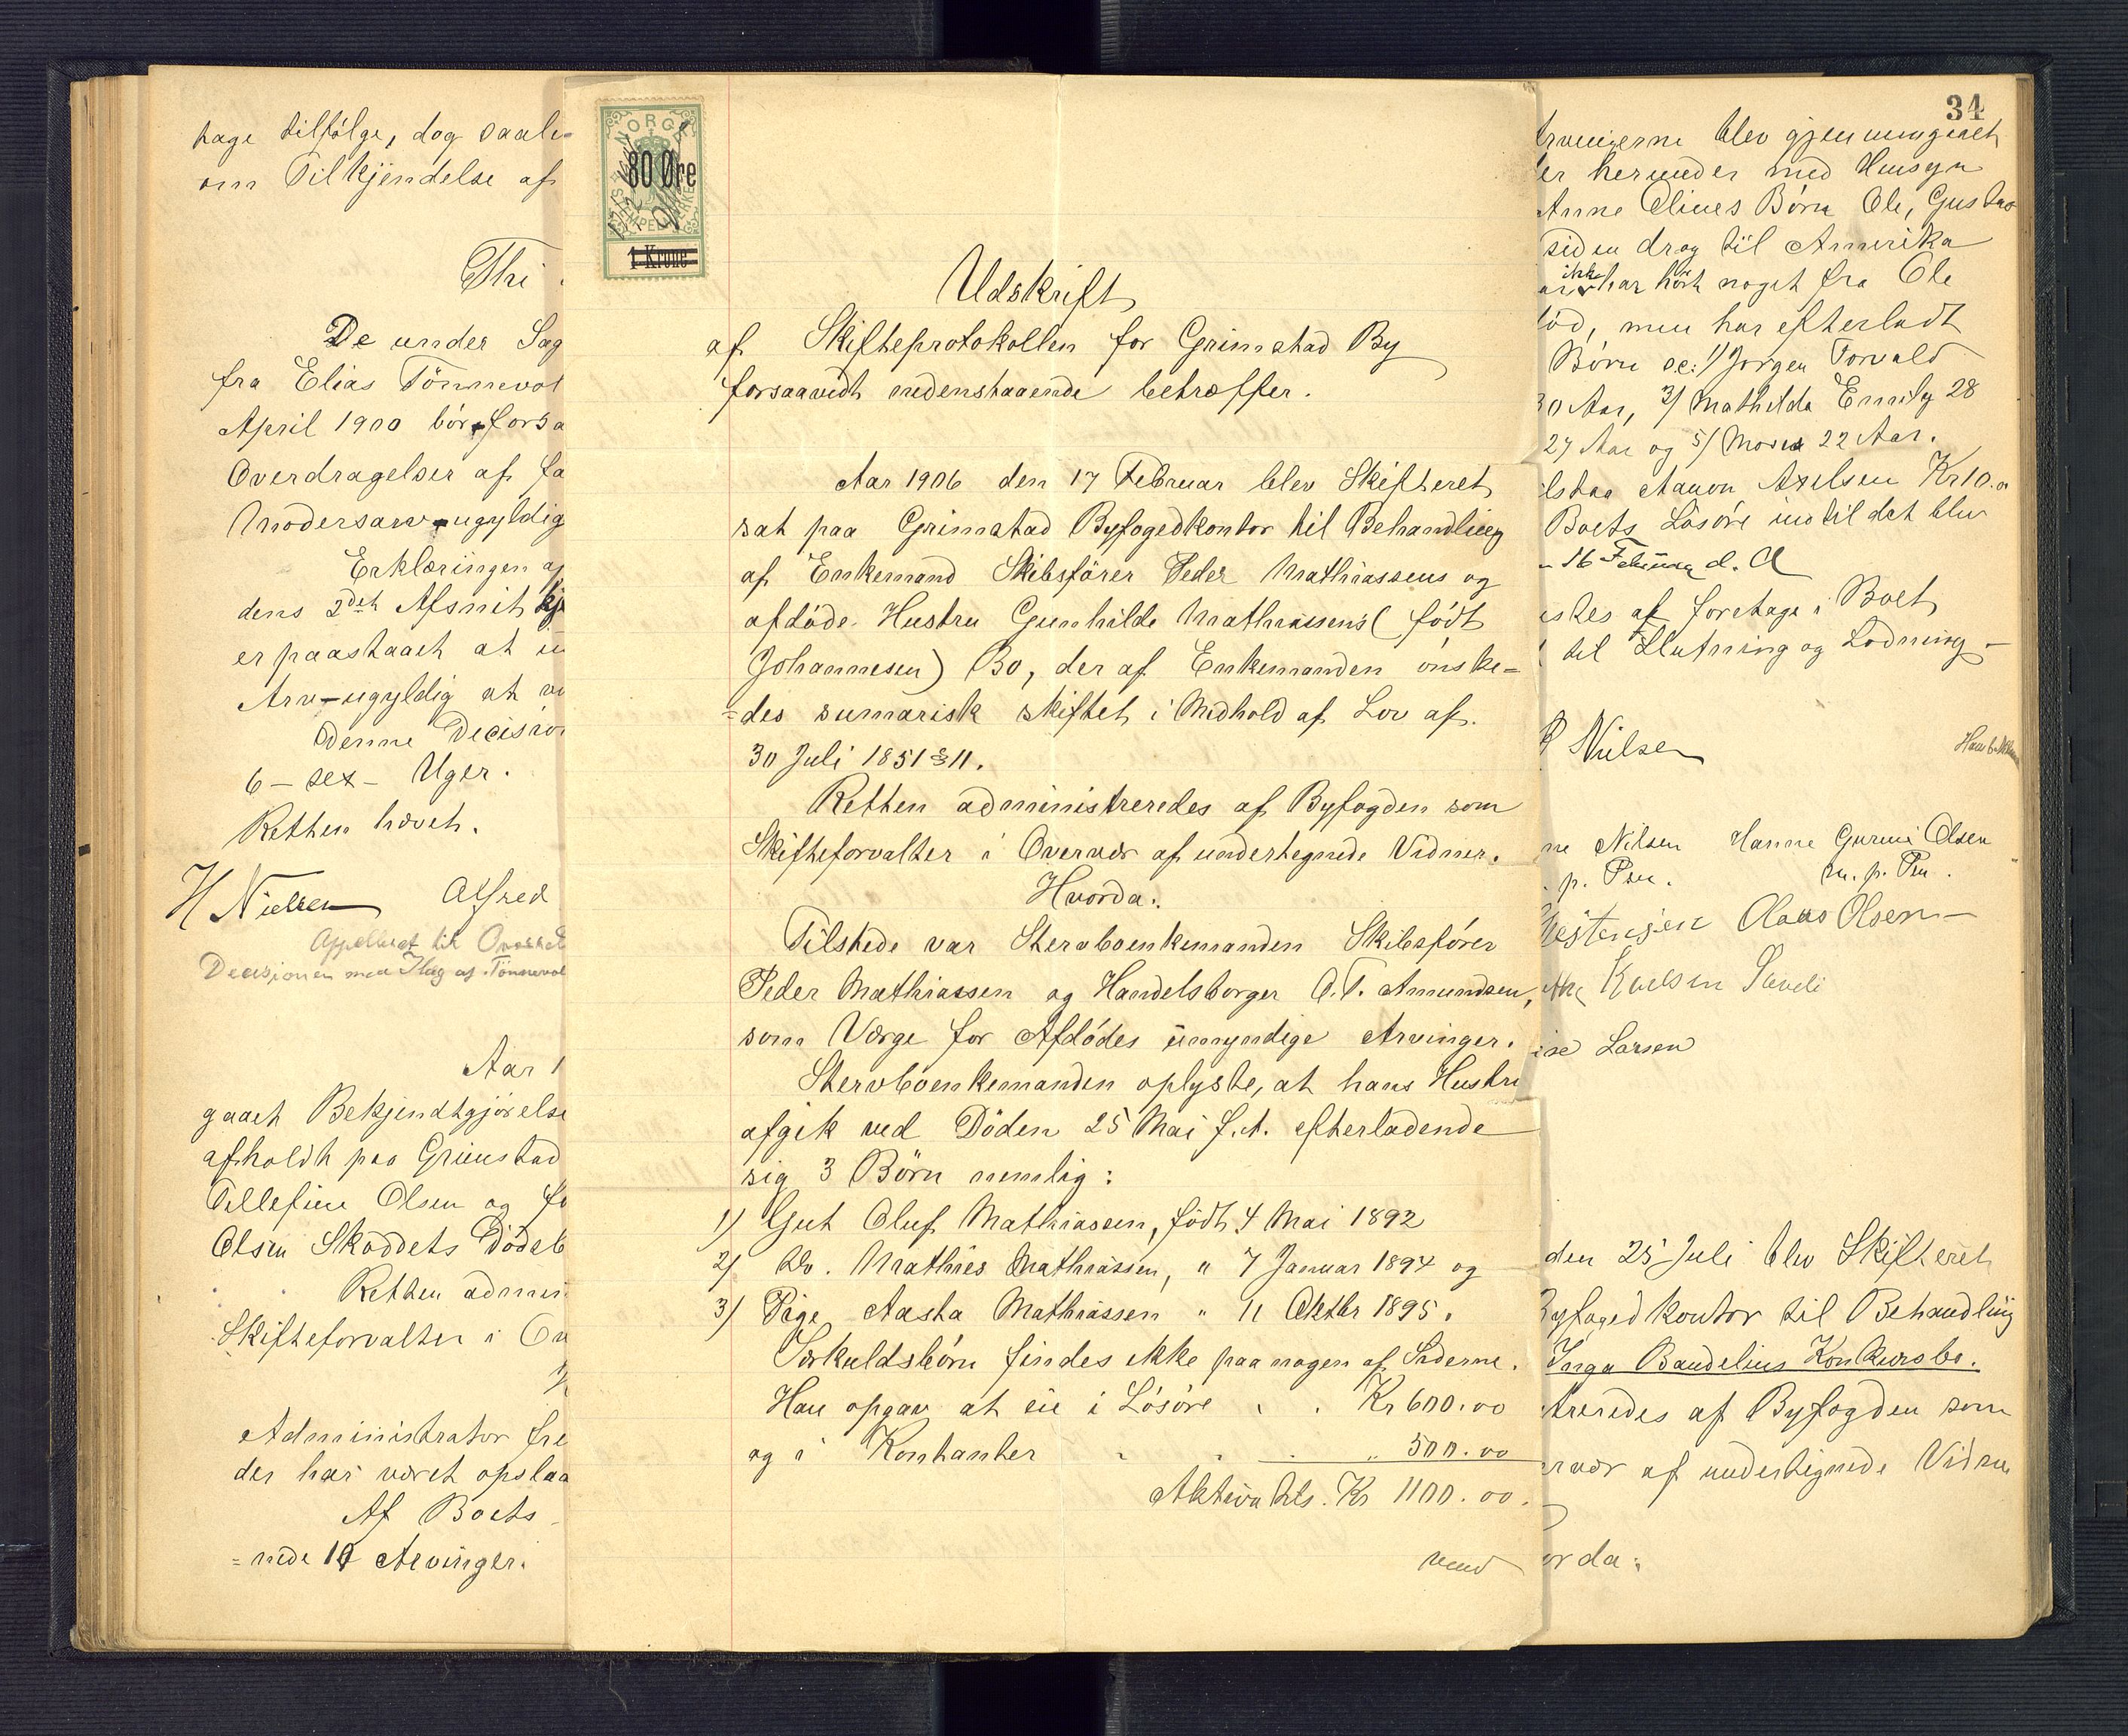 tage tilfölge, dog saale-
om Tilkjendelse af
Thi
De under Sag
fra Elias Tönnevol
April 1900 bör forsa
Overdragelser af fa
Modersarv ugyldig
Erklæringen a
dens 2det Afsnit kj
er paastaaet at
Arv-ugyldig at
Denne Decision
6 - sex - Uger.
Retten hævet.
H Nielsen Alfred
Appelleret til Overret
Decisionen med Tlæg af Tönnevol
Aar 1
gaaet Bekjendtgjörelse
afholdt paa Grimstad
Tellefine Olsen og fo
Olsen Skoddets Dödsb
Retten admin
Skifteforvalter i Ov
Administrator fre
der har været opslaa
Af Boets
= nede 10 Arvinger.
NORGE
80 Øre
STEMPELMERKE
1 Krone
Udskrift
af Skifteprotokollen for Grimstad By
forsaavidt nedenstaaende betræffer.
Aar 1906 den 17 Februar blev Skifteret
sat paa Grimstad Byfogedkontor til Behandling
af Enkemand Skibsförer Peder Mathiassens og
afdöde Hustru Gunhilde Mathiassens (födt
Johannesen) Bo, der af Enkemanden önske=
=des sumarisk skiftet i Medhold af Lov af
30 Juli 1851 § 11.
Retten administreredes af Byfogden som
Skifteforvalter i Overvær af undertegnede Vidner.
Hvorda:
Tilstede var Stervboenkemanden Skibsförer
Peder Mathiassen og Handelsborger O.T. Amundsen,
som Værge for Afdödes umyndige Arvinger.
Stervboenkemanden oplyste, at hans Hustru
afgik ved Döden 25 Mai f.A. efterladende
sig 3 Börn nemlig:
1) Gut Oluf Mathiassen, födt 4 Mai 1892
2) Do. Mathies Mathiassen, " 7 Januar 1894 og
3) Pige Aasta Mathiassen " 11 Oktbr 1895.
Særkuldsbörn findes ikke paa nogen af Siderne.
Han opgav at eie i Lösöre . . Kr 600.00
og i Kontanter . . . " 500.00
Aktiva tils. Kr 1100.00.
vend
34
Arvingerne blev gjennemgaaet
er herunder med Hensyn
Anne Elines Börn Ole, Gustav
siden drog til Amerika
ikke har hört noget fra Ole
död, men har efterladt
Börn sc: 1) Jörgen Torvald
30 Aar, 3) Mathilda Emily 28
27 Aar og 5) 22 Aar.
Aanon Axelsen Kr 10.0
Boets Lösöre indtil det blev
16 Februar d. A
af foretage i Boet
til Slutning og Lodning -
Nielsen
ne Nilsen Hanne Gurine Olsen
p. Pen. m. p. Pen.
Olaus Olsen
Larsen
den 25 Juli blev Skifteret
Byfogedkontor til Behandling
Inga Baudelius Konkursbo.
treredes af Byfogden som
rvær af undertegnede Vidne
orda: